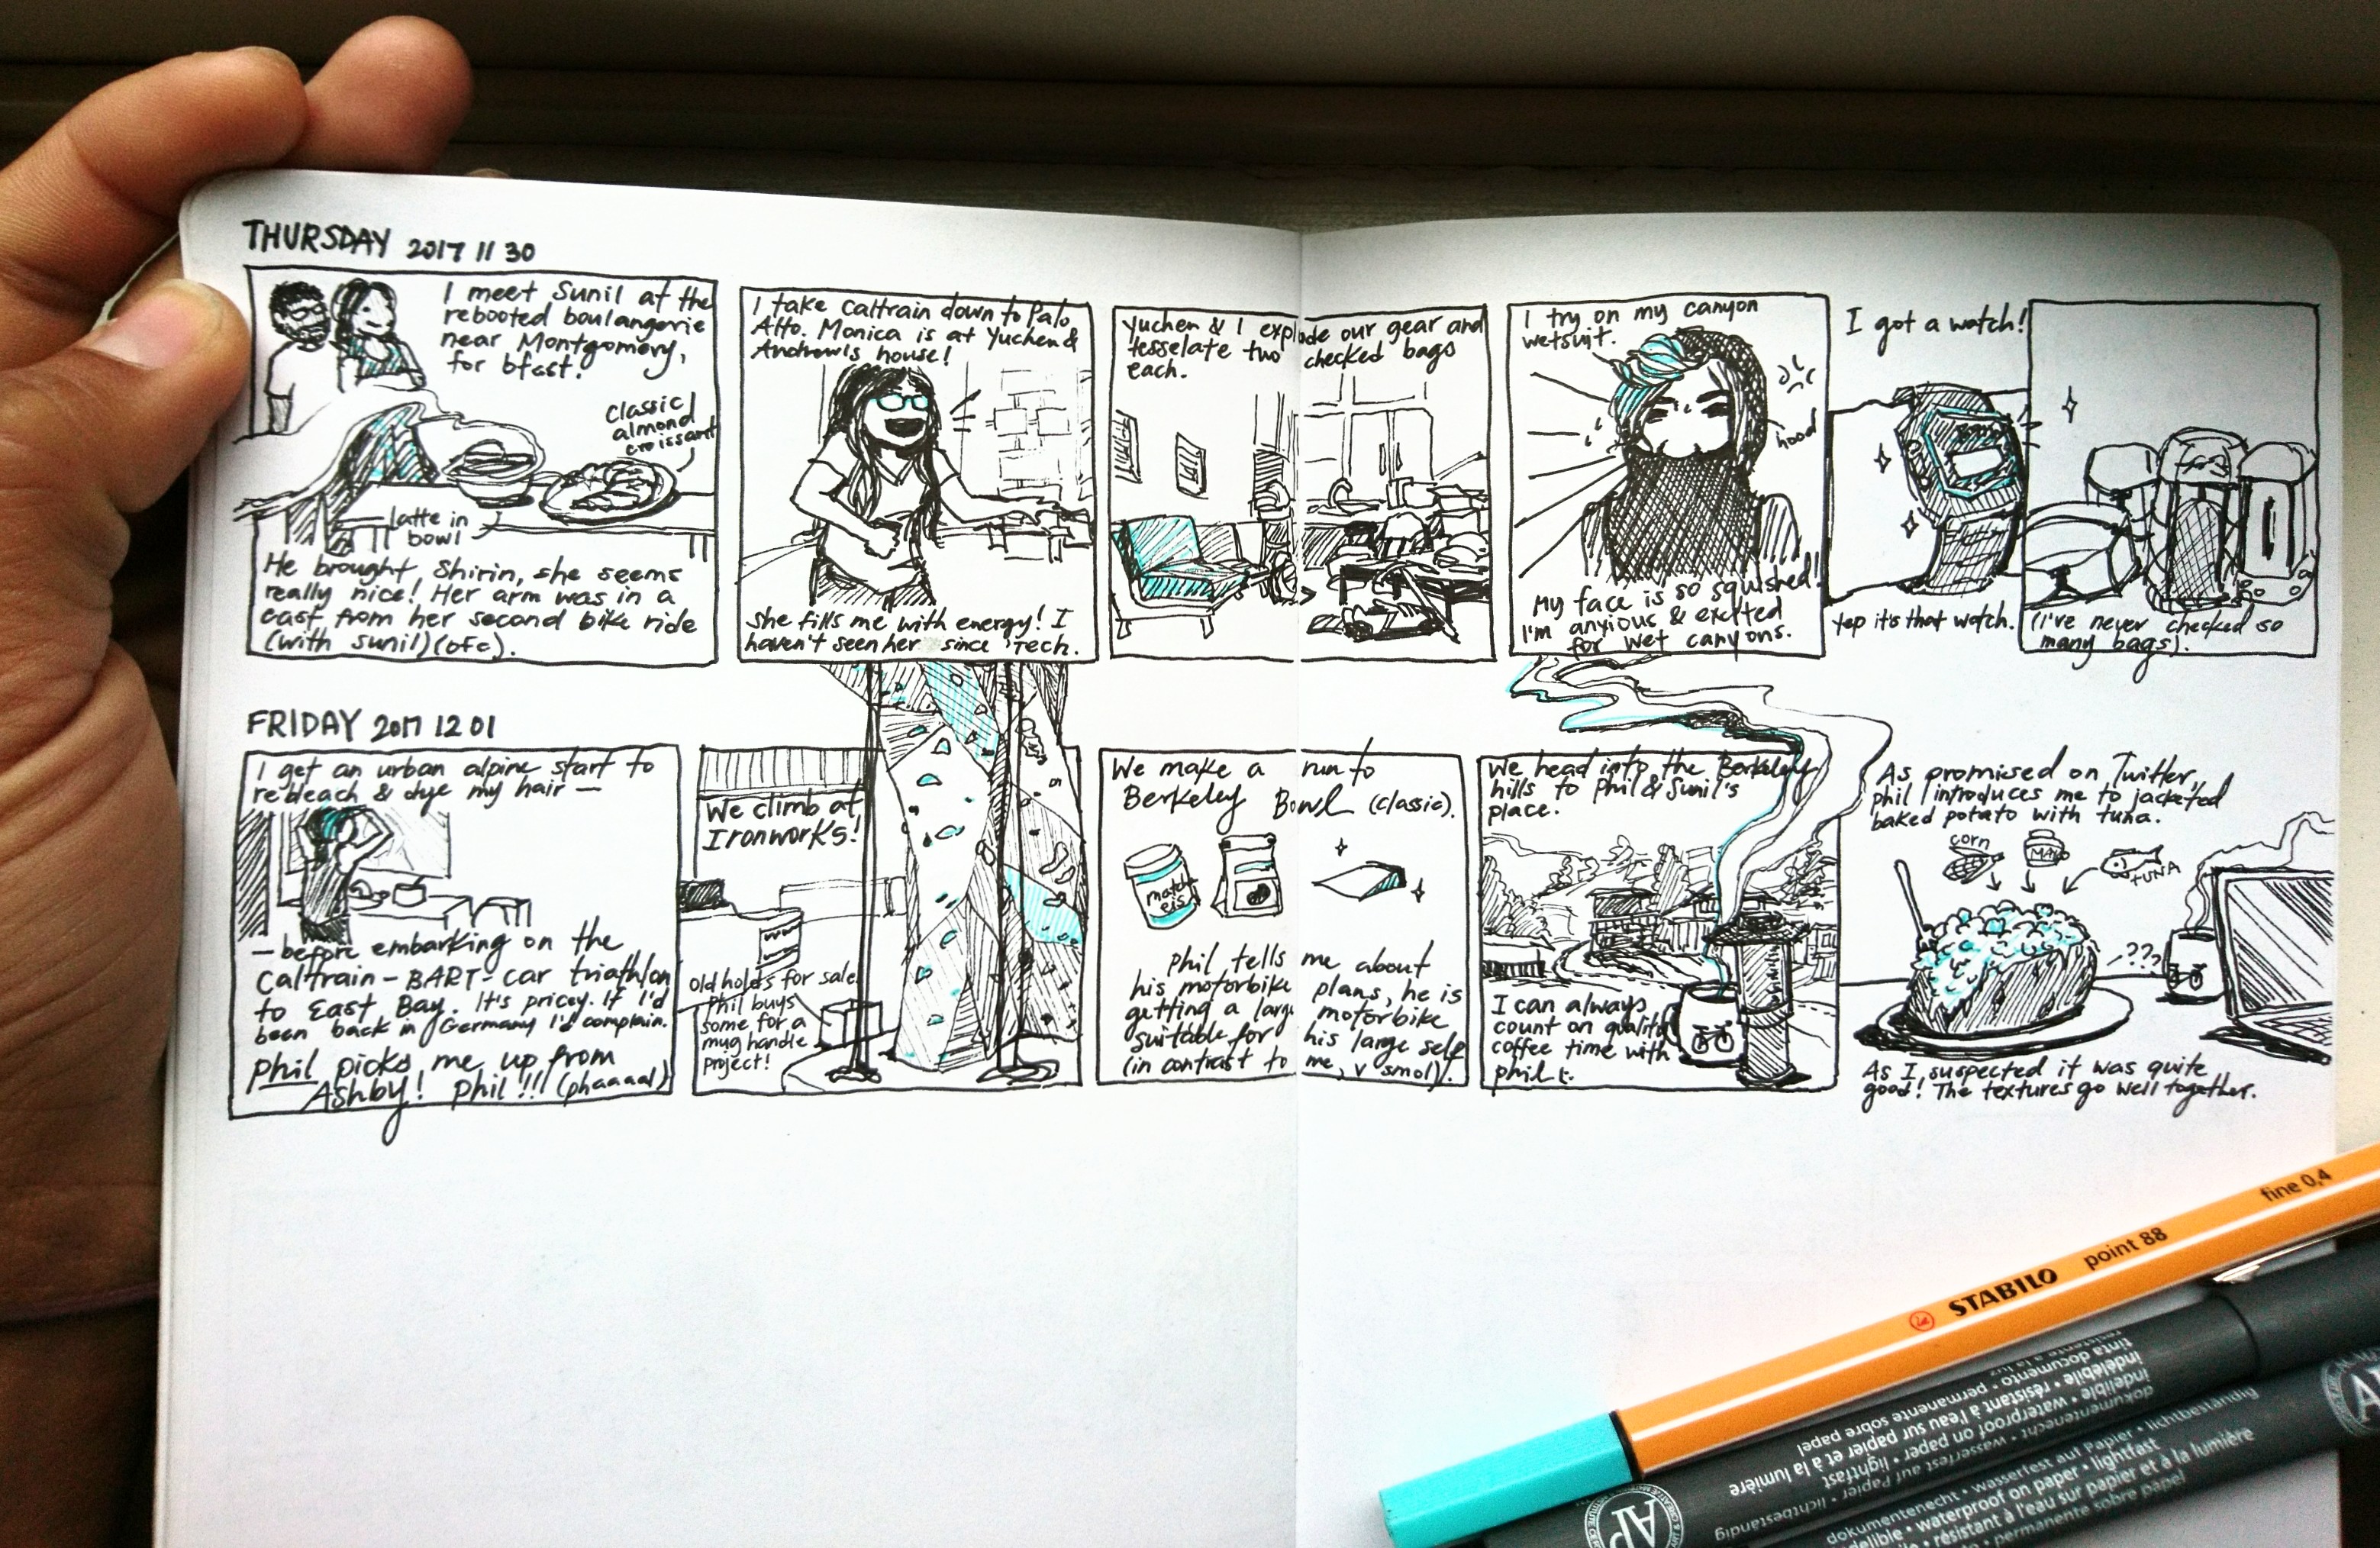 THURSDAY 2017 11 30
I meet Sunil at the
rebooted boulangerie
near Montgomery,
for bfast.
classic
almond
croissant
latte in
bowl
He brought Shirin, she seems
really nice! Her arm was in a
cast from her second bike ride
(with sunil) (ofc).
I take Caltrain down to Palo
Alto. Monica is at Yuchen &
Andrew's house!
She fills me with energy! I
haven't seen her since Tech.
Yuchen & I explode our gear and
tesselate two checked bags
each.
I try on my canyon
wetsuit.
hood
My face is so squished!
I'm anxious & excited
for wet canyons.
I got a watch!
yep it's that watch.
(I've never checked so
many bags).
FRIDAY 2017 12 01
I get an urban alpine start to
rebleach & dye my hair —
— before embarking on the
Caltrain - BART - car triathlon
to East Bay. It's pricey. If I'd
been back in Germany I'd complain.
Phil picks me up from
Ashby! Phil!!! (phaaaal)
We climb at
Ironworks!
old holds for sale.
Phil buys
some for a
mug handle
project!
We make a run to
Berkeley Bowl (classic).
Phil tells me about
his motorbike plans, he is
getting a large motorbike
suitable for his large self
(in contrast to me, v smol).
We head into the Berkeley
hills to Phil & Sunil's
place.
I can always
count on quality
coffee time with
phil t.
As promised on Twitter,
phil introduces me to jacketed
baked potato with tuna.
corn
MAYO
TUNA
???
As I suspected it was quite
good! The textures go well together.
STABILO point 88 fine 0,4
tinta documento • permanente sobre papel
indélébile • résistant à l'eau sur papier et à la lumière
dokumentenecht • wasserfest auf Papier • lichtbeständig
waterproof on paper • lightfast
AP
dokumentenecht • wasserfest auf Papier • lichtbeständig
indelible • waterproof on paper • lightfast
résistant à l'eau sur papier et à la lumière
permanente sobre papel